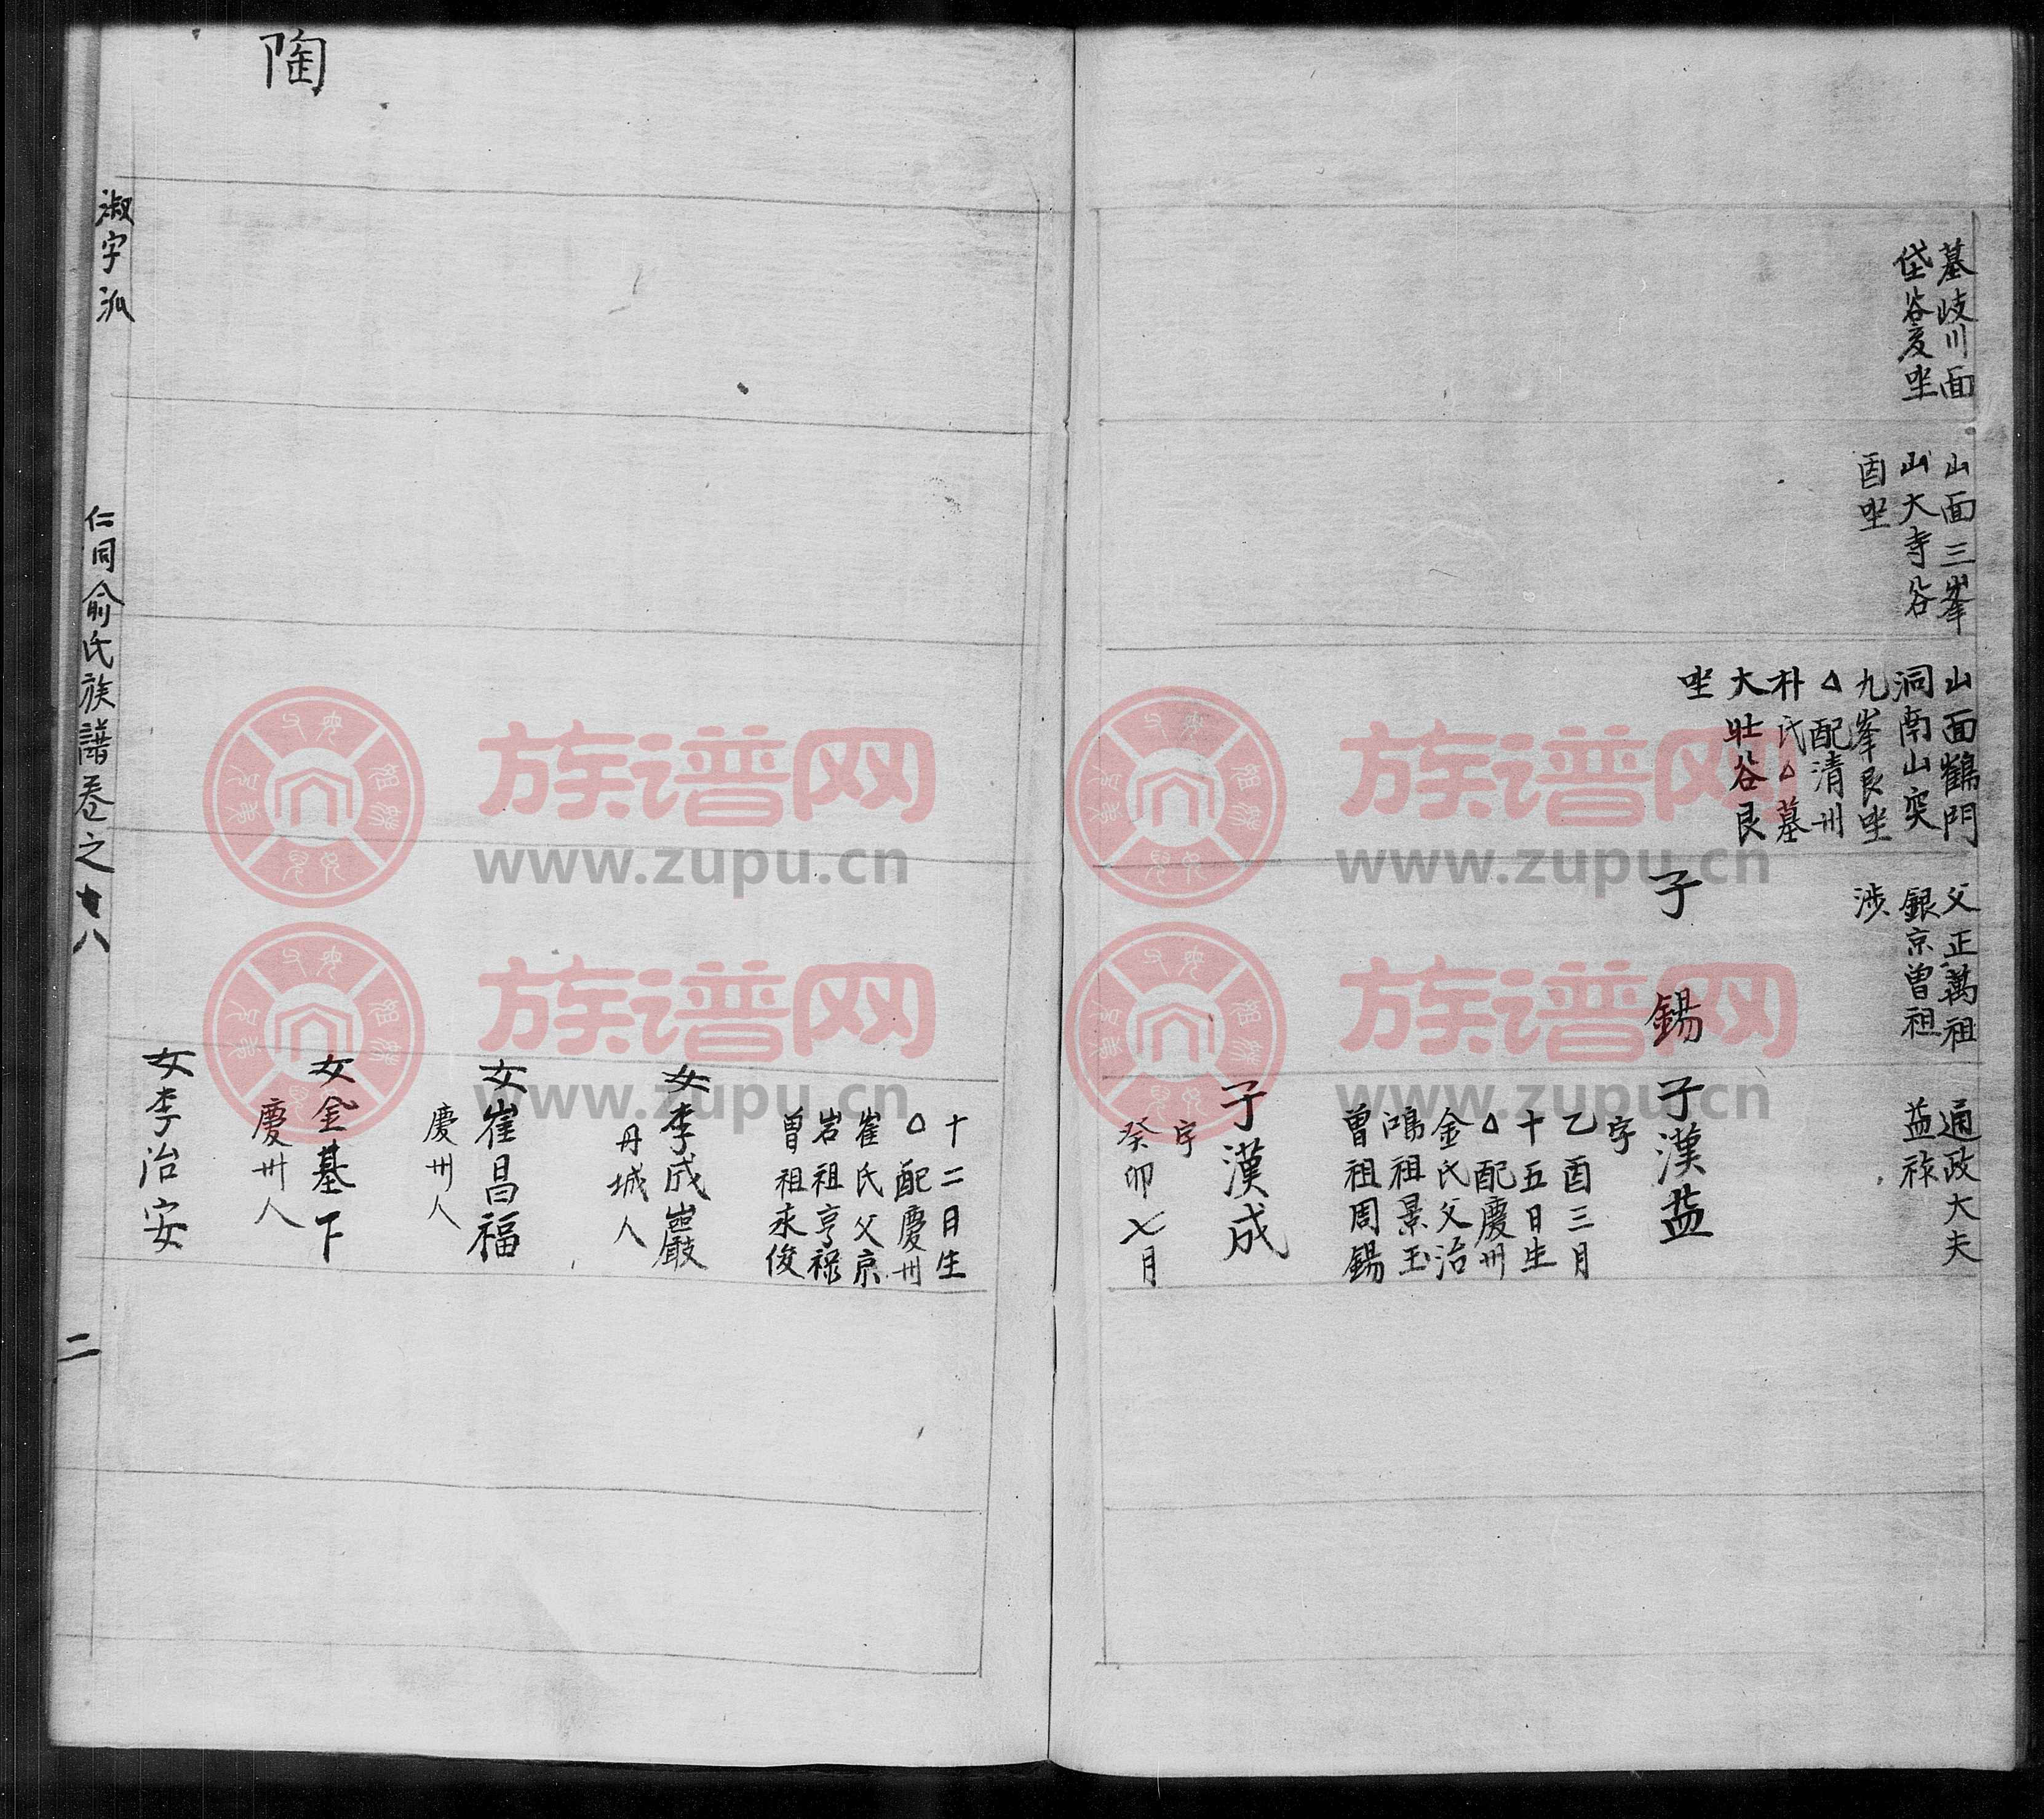 墓岐川面
垈谷亥坐
山面三峯
山大寺谷
酉坐
山面鶴門
洞南山突
九峯艮坐
△配清州
朴氏△墓
大壯谷艮
坐
父正萬祖
銀京曽祖
涉
子 錫
通政大夫
益祿
子漢益
字
乙酉三月
十五日生
△配慶州
金氏父治
鴻祖景玉
曽祖周錫
子漢成
字
癸卯七月
陶
十二日生
△配慶州
崔氏父京
岩祖亨祿
曽祖永俊
女李成巖
丹城人
女崔昌福
慶州人
女金基下
慶州人
女李治安
淑字派
仁同俞氏族譜卷之十八
二
族谱网
www.zupu.cn
族谱网
www.zupu.cn
族谱网
www.zupu.cn
族谱网
www.zupu.cn